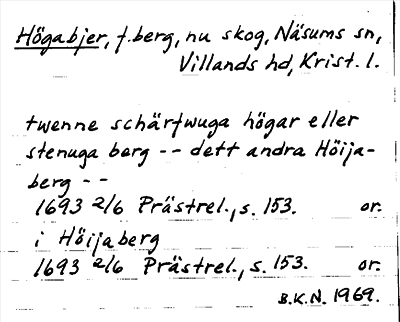 Högabjer, f.berg, nu skog, Näsums sn,
Villands hd, Krist. l.
twenne schärfwuga högar eller
stenuga berg -- dett andra Höija-
berg --
1693 2/6 Prästrel., s. 153. or.
i Höijaberg
1693 2/6 Prästrel., s. 153. or.
B.K.N. 1969.